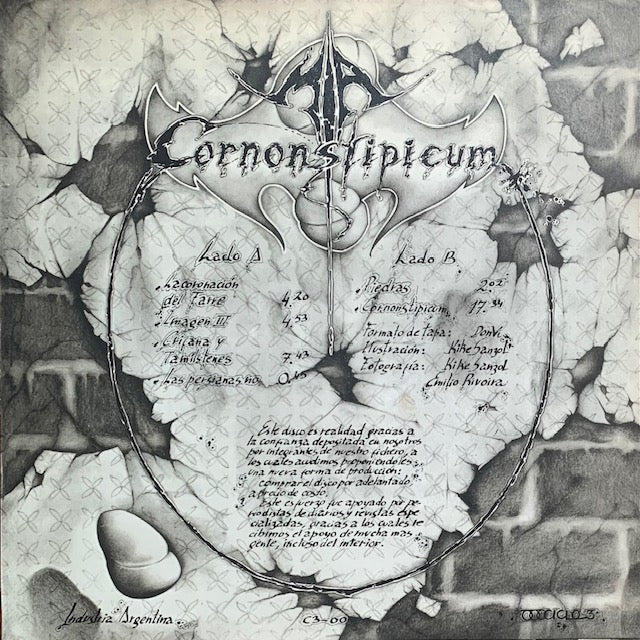 MIA
Cornonstipicum
Lado A
La coronación
del Farre 4,20
Imagen III 4,53
Crifana y
Tamilstenes 7,43
Las persianas no 0,45
Lado B
Piedras 2.02
Cornonstipicum 17.34
Formato de tapa: Donvi
Ilustración: Kike Sanzol
Fotografía: Kike Sanzol
Emilio Rivoira
Este disco es realidad gracias a
la confianza depositada en nosotros
por integrantes de nuestro fichero, a
los cuales acudimos proponiéndoles
una nueva forma de producción:
comprar el disco por adelantado
a precio de costo.
Este esfuerzo fue apoyado por pe
riodistas de diarios y revistas espe
cializadas, gracias a los cuales re
cibimos el apoyo de mucha mas
gente, incluso del interior.
Industria Argentina
C3-00
CICLO-3